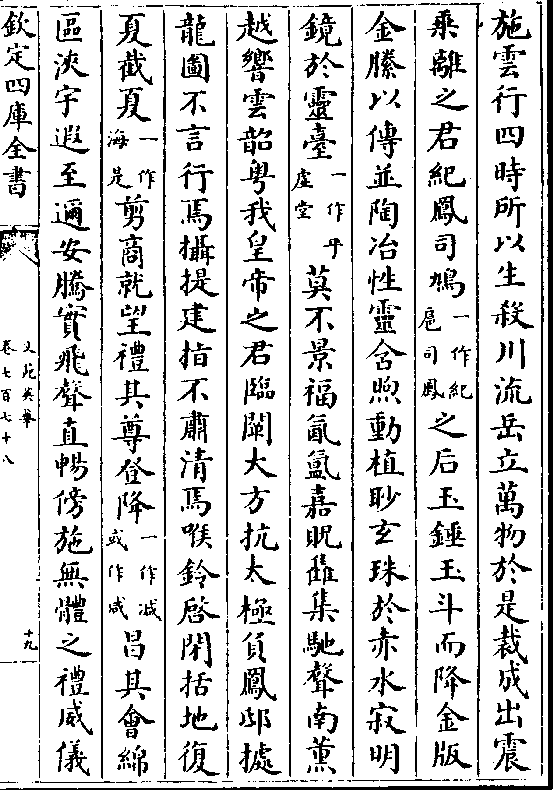 施雲行四時所以生殺川流岳立萬物於是裁成出震
乘離之君紀鳳司鳩一作紀扈司鳳之后玉錘玉斗而降金版
金縢以傳並陶冶性靈含煦動植眇玄珠於赤水寂明
鏡於靈臺一作乎虛堂莫不景福氤氳嘉貺雜集馳聲南薰
越響雲韶粤我皇帝之君臨闡大方抗太極負鳳邸據
龍圖不言行焉攝提建指不肅清焉喉鈐啓閉括地復
夏截夏一作海是剪商就望禮其尊登降一作減或作咸昌其會綿
區浹宇遐至邇安騰實飛聲直暢傍施無體之禮威儀
欽定四庫全書
文苑英華
卷七百七十八
十九